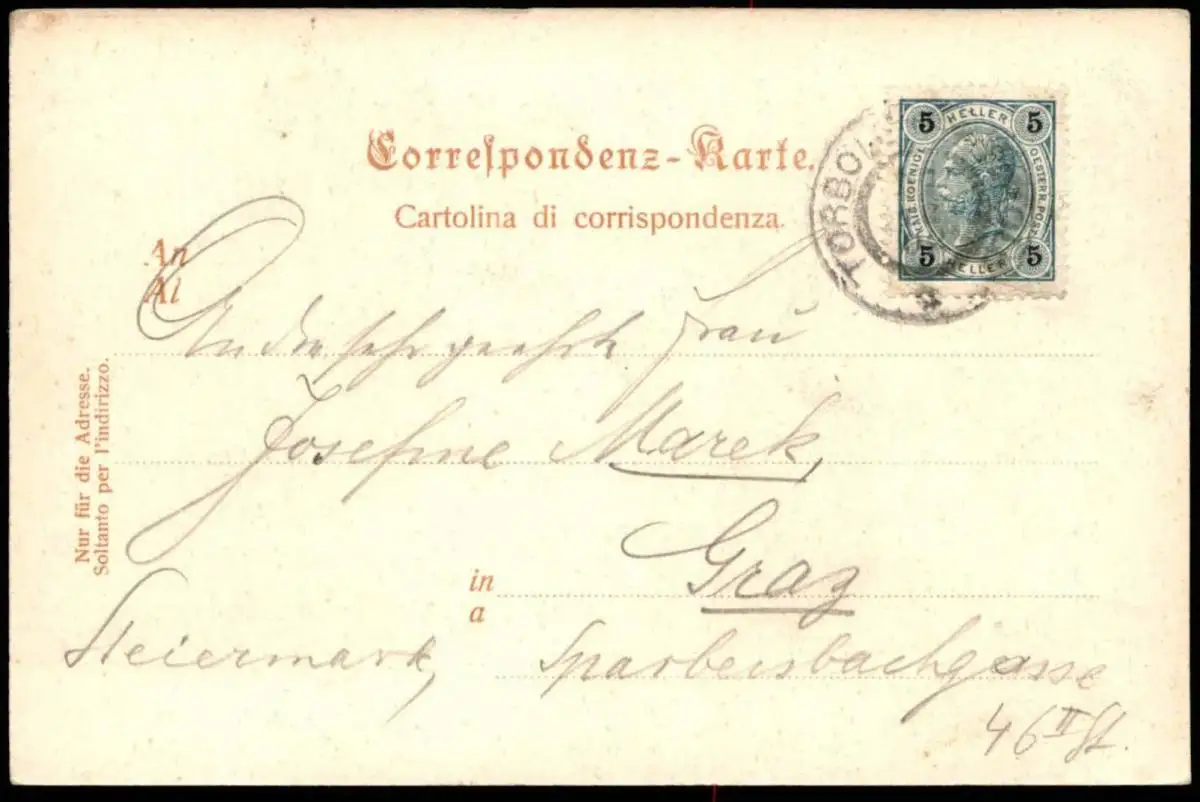 Correspondenz-Karte.
Cartolina di corrispondenza.
TORBOLE
5 HELLER 5
KAIS. KOENIGL. OESTERR. POST
5 HELLER 5
An
Al
An die sehr geehrte Frau
Josefine Marek,
in Graz
a
Steiermark, Sparbersbachgasse
46 II St.
Nur für die Adresse.
Soltanto per l'indirizzo.